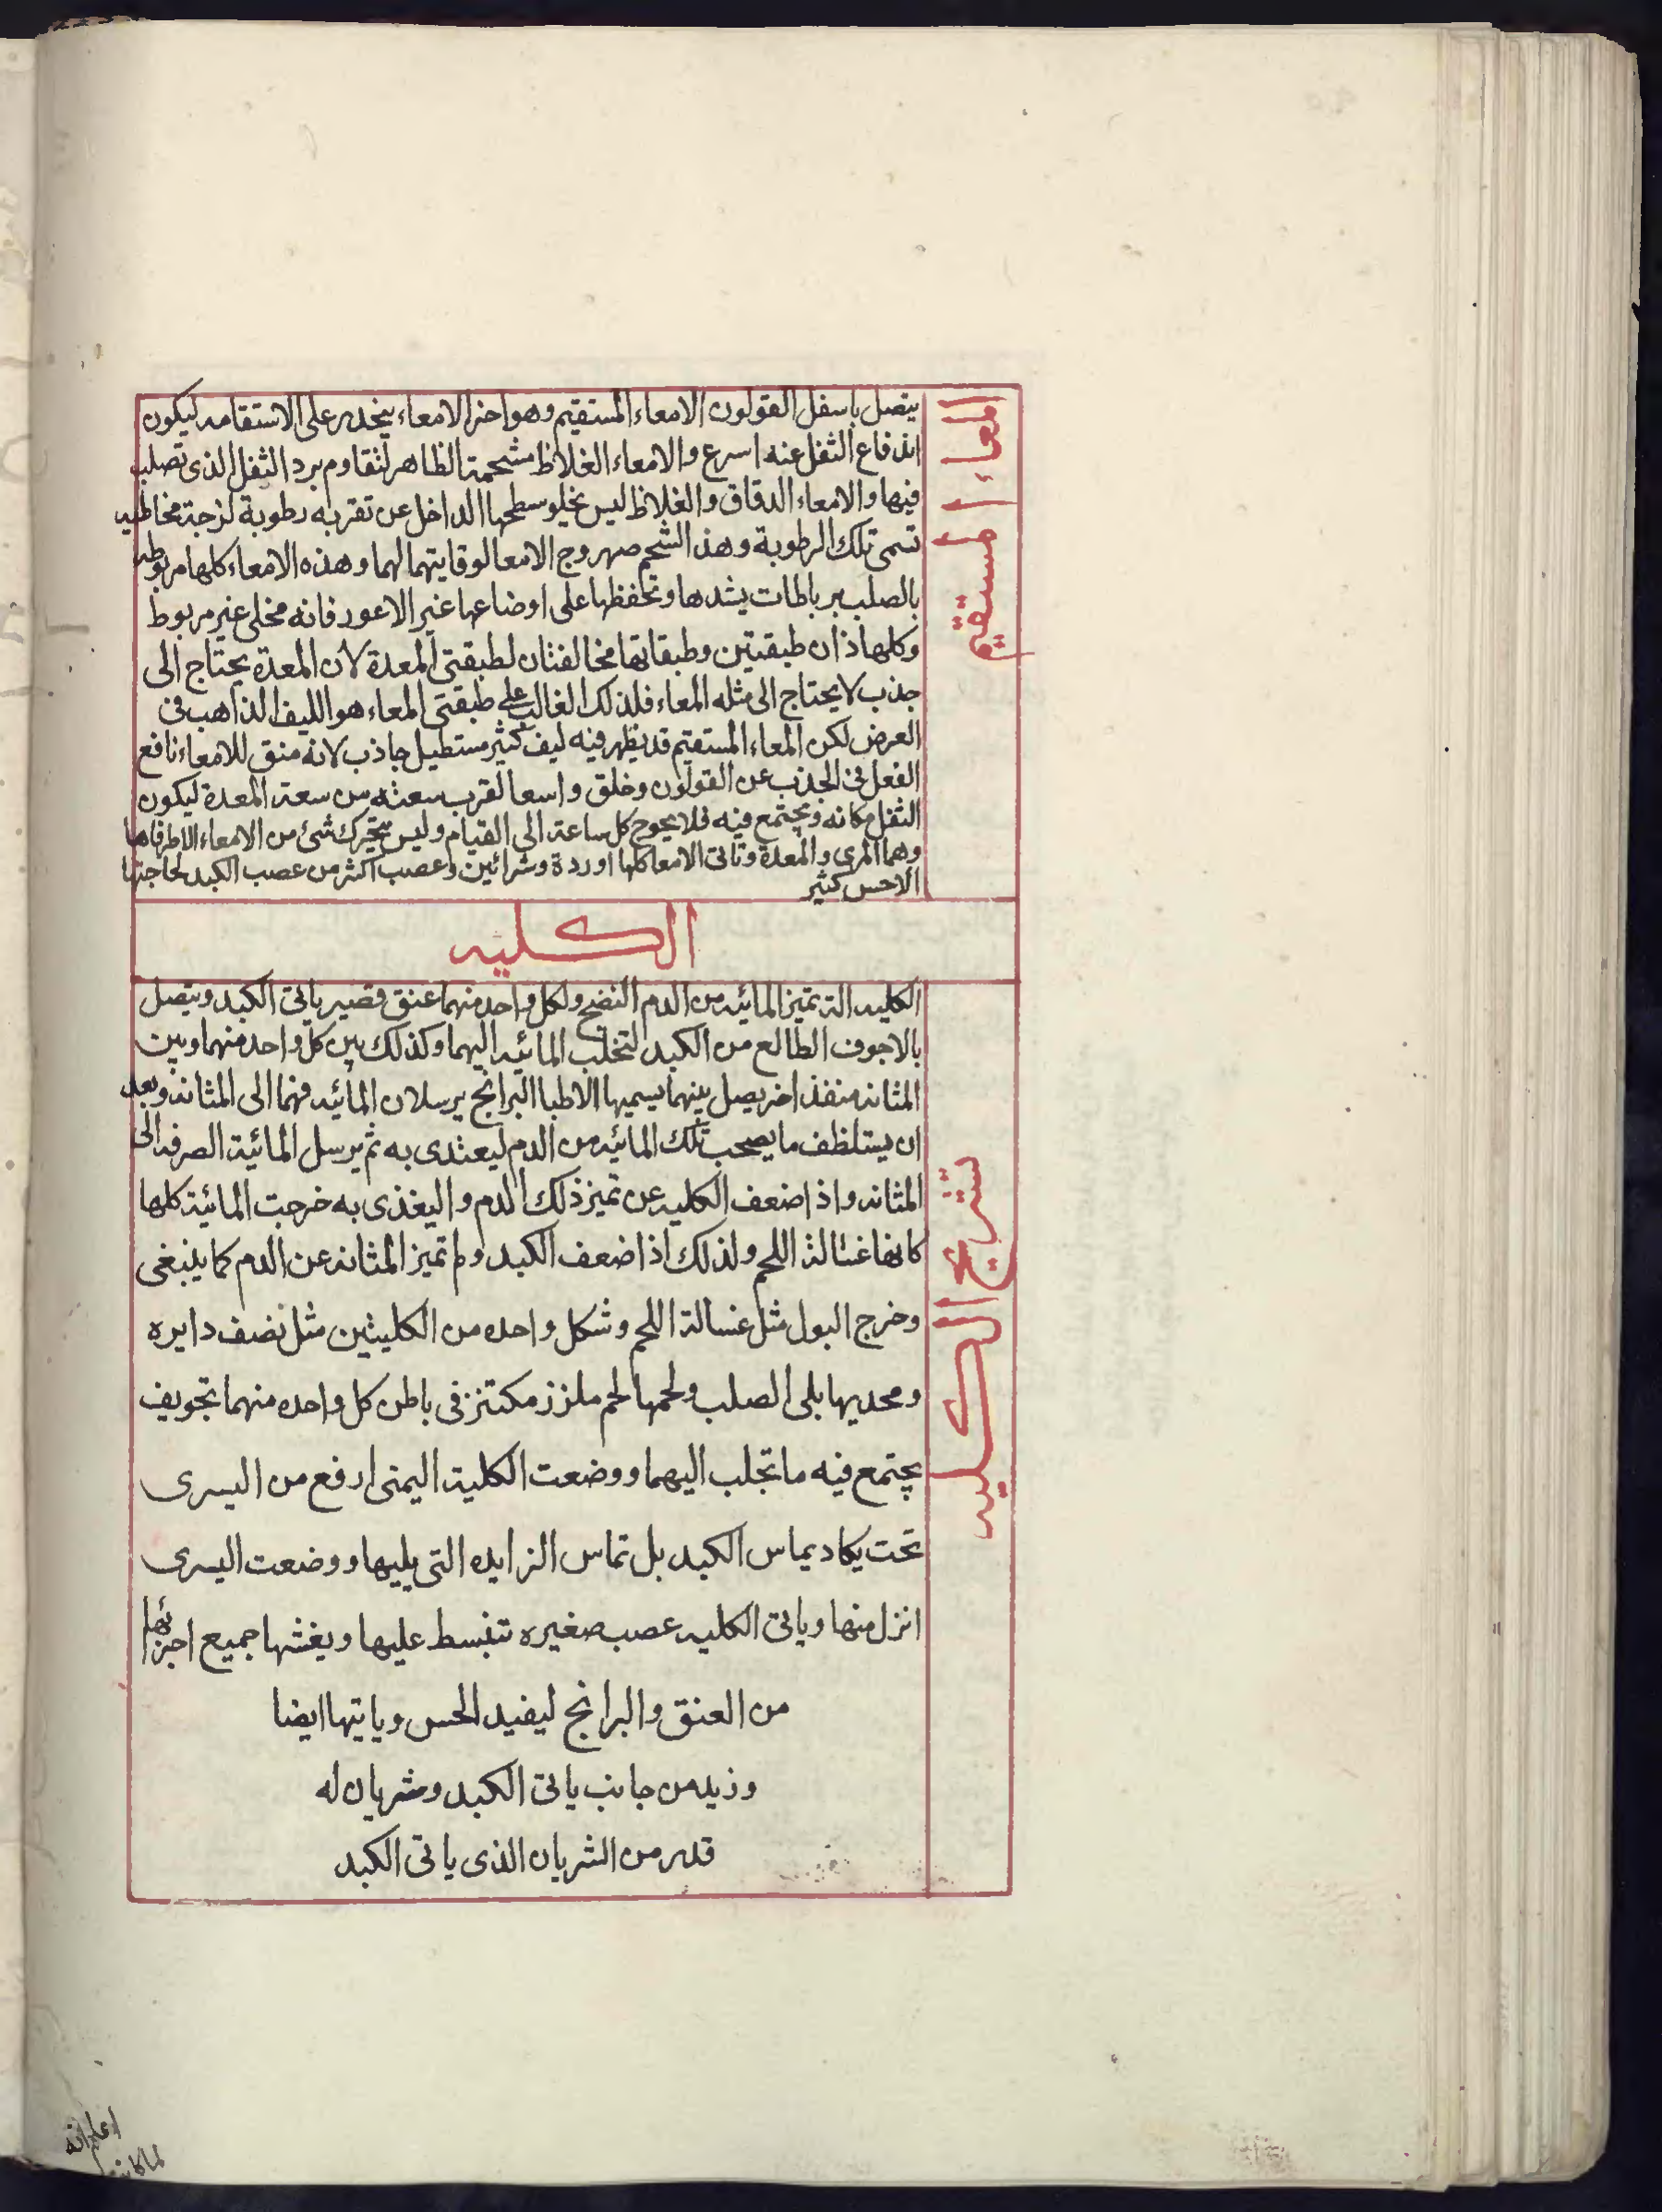 المعاء المستقيم
يتصل باسفل القولون الامعاء المستقيم وهو اخر الامعاء ينحدر على الاستقامه ليكون
اندفاع الثفل عنه اسرع والامعاء الغلاظ مشحمة الظاهر لتقاوم برد الثفل الذى تصلب
فيها والامعاء الدقاق والغلاظ ليس يخلو سطحها الداخل عن تقربه رطوبة لزجة مخاطيه
تسمى تلك الرطوبة وهذ الشحم صهروج الامعا لوقايتهما لهما وهذه الامعاء كلها مربوطه
بالصلب برباطات يشدها وتحفظها على اوضاعها غير الاعور فانه مخلى غير مربوط
وكلها ذان طبقتين وطبقاتها مخالفتان لطبقتى المعدة لان المعدة يحتاج الى
جذب لا يحتاج الى مثله المعاء فلذلك الغالب على طبقتى المعاء هو الليف الذاهب فى
العرض لكن المعاء المستقيم قد يظهر فيه ليف كثير مستطيل جاذب لانه منق للامعاء نافع
الفعل فى الجذب عن القولون وخلق واسعا لقرب سعته من سعة المعدة ليكون
الثفل مكانه ويجتمع فيه فلا يحوج كل ساعة الى القيام وليس يتحرك شئ من الامعاء الا طرفاها
وهما المرى والمعدة وتاتى الامعا كلها اوردة وشرائين وعصب اكثر من عصب الكبد لحاجتها
الاحس كثير
الكليه
تشريح الكليه
الكليه الة تميز المائيه من الدم النضج ولكل واحد منهما عنق قصير ياتى الكبد ويتصل
بالاجوف الطالع من الكبد لتخلب المائيه اليهما وكذلك بين كل واحد منهما وبين
المثانه منفذ اخر يصل بينهما يسميها الاطبا البرانج يرسلان المائيه فهما الى المثانه وبعد
ان يستلظف ما يصحب تلك المائيه من الدم ليعتدى به ثم يرسل المائية الصرفه الى
المثانه واذا ضعف الكليه عن تميز ذلك الدم واليغذى به خرجت المائية كلها
كانها غسالة اللحم ولذلك اذا ضعف الكبد ولم تميز المثانه عن الدم كما ينبغى
وخرج البول مثل غسالة اللحم وشكل واحده من الكليتين مثل نصف دايره
ومحديها يلى الصلب ولحمها لحم ملزز مكتنز فى باطن كل واحده منهما تجويف
يجتمع فيه ما تجلب اليهما ووضعت الكلية اليمنى ارفع من اليسرى
تحت يكاد يماس الكبد بل تماس الزايده التى يليها ووضعت اليسرى
انزل منها وياتى الكليه عصب صغيره تنبسط عليها ويغشها جميع اجزائها
من العنق والبرانج ليفيد الحس وياتيها ايضا
وزيد من جانب ياتى الكبد وشريان له
قدر من الشريان الذى ياتى الكبد
اعلم انه
لما كانت